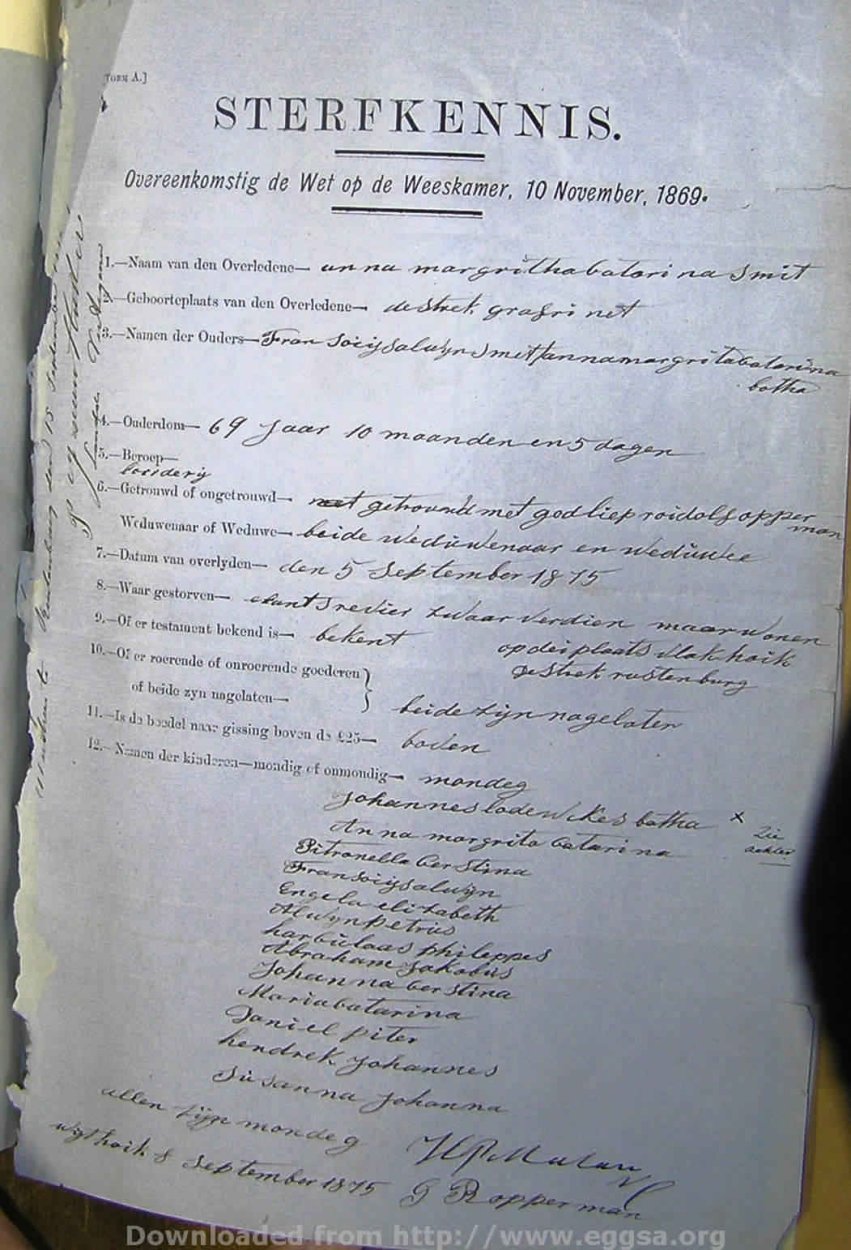 FORM A.]
STERFKENNIS.
Overeenkomstig de Wet op de Weeskamer, 10 November, 1869.
1.—Naam van den Overledene— anna margritha batarina Smit
2.—Geboorteplaats van den Overledene— destrek grafri net
3.—Namen der Ouders— Fran Soeijsalwyn Smit annamargrita batarina
botha
4.—Ouderdom— 69 Jaar 10 maanden en 5 dagen
5.—Beroep—
boerderij
6.—Getrouwd of ongetrouwd— getrouwd met godliep roidolf opper
man
Weduwenaar of Weduwe— beide weduwenaar en weduwee
7.—Datum van overlyden— den 5 September 1875
8.—Waar gestorven— elants revier zwaar verdien maar wonen
op dei plaats vlak hoik
destrek rustenburg
9.—Of er testament bekend is— bekent
10.—Of er roerende of onroerende goederen
of beide zyn nagelaten— beide zijn nagelaten
11.—Is de boedel naar gissing boven de £25— boven
12.—Namen der kinderen—mondig of onmondig— mondeg
Johannes lodewkes botha x Zie
achter
Anna margrita batarina
Pitronella berstina
Fransoeijsalwijn
Engela elizabeth
Alwyn petrus
harbulaas phileppes
Abraham Jakobus
Johanna berstina
Maria batarina
Daniel piter
hendrek Johannes
Susanna Johanna
allen zijn mondeg
wythoik 8 September 1875
G R opperman
Downloaded from http://www.eggsa.org